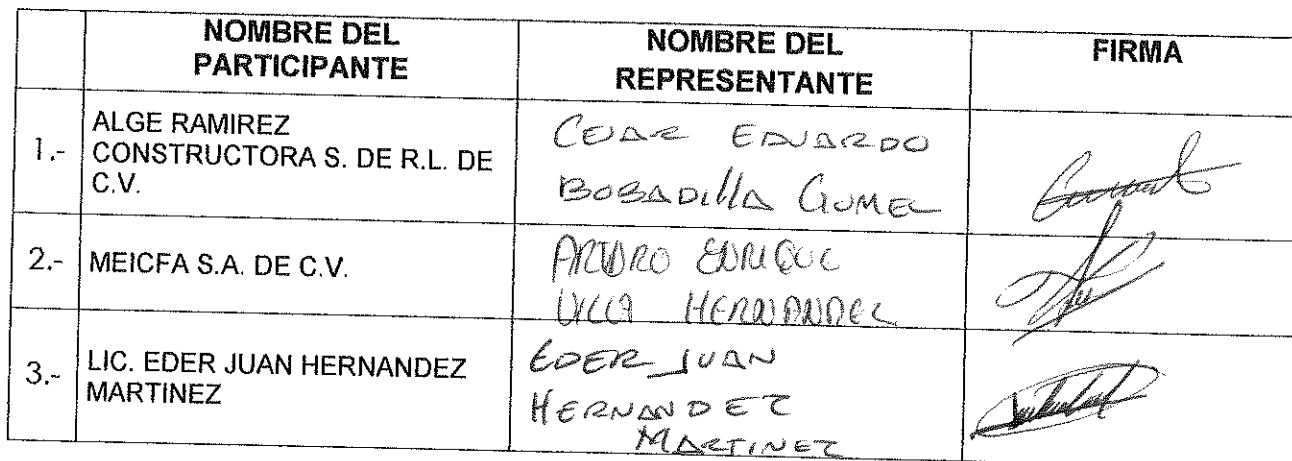 NOMBRE DEL
PARTICIPANTE
NOMBRE DEL
REPRESENTANTE
FIRMA
1.-
ALGE RAMIREZ
CONSTRUCTORA S. DE R.L. DE
C.V.
EDUARDO
BOBADILLA
2.-
MEICFA S.A. DE C.V.
ARTURO ENRIQUE
VILLA HERNANDEZ
3.-
LIC. EDER JUAN HERNANDEZ
MARTINEZ
EDER JUAN
HERNANDEZ
MARTINEZ